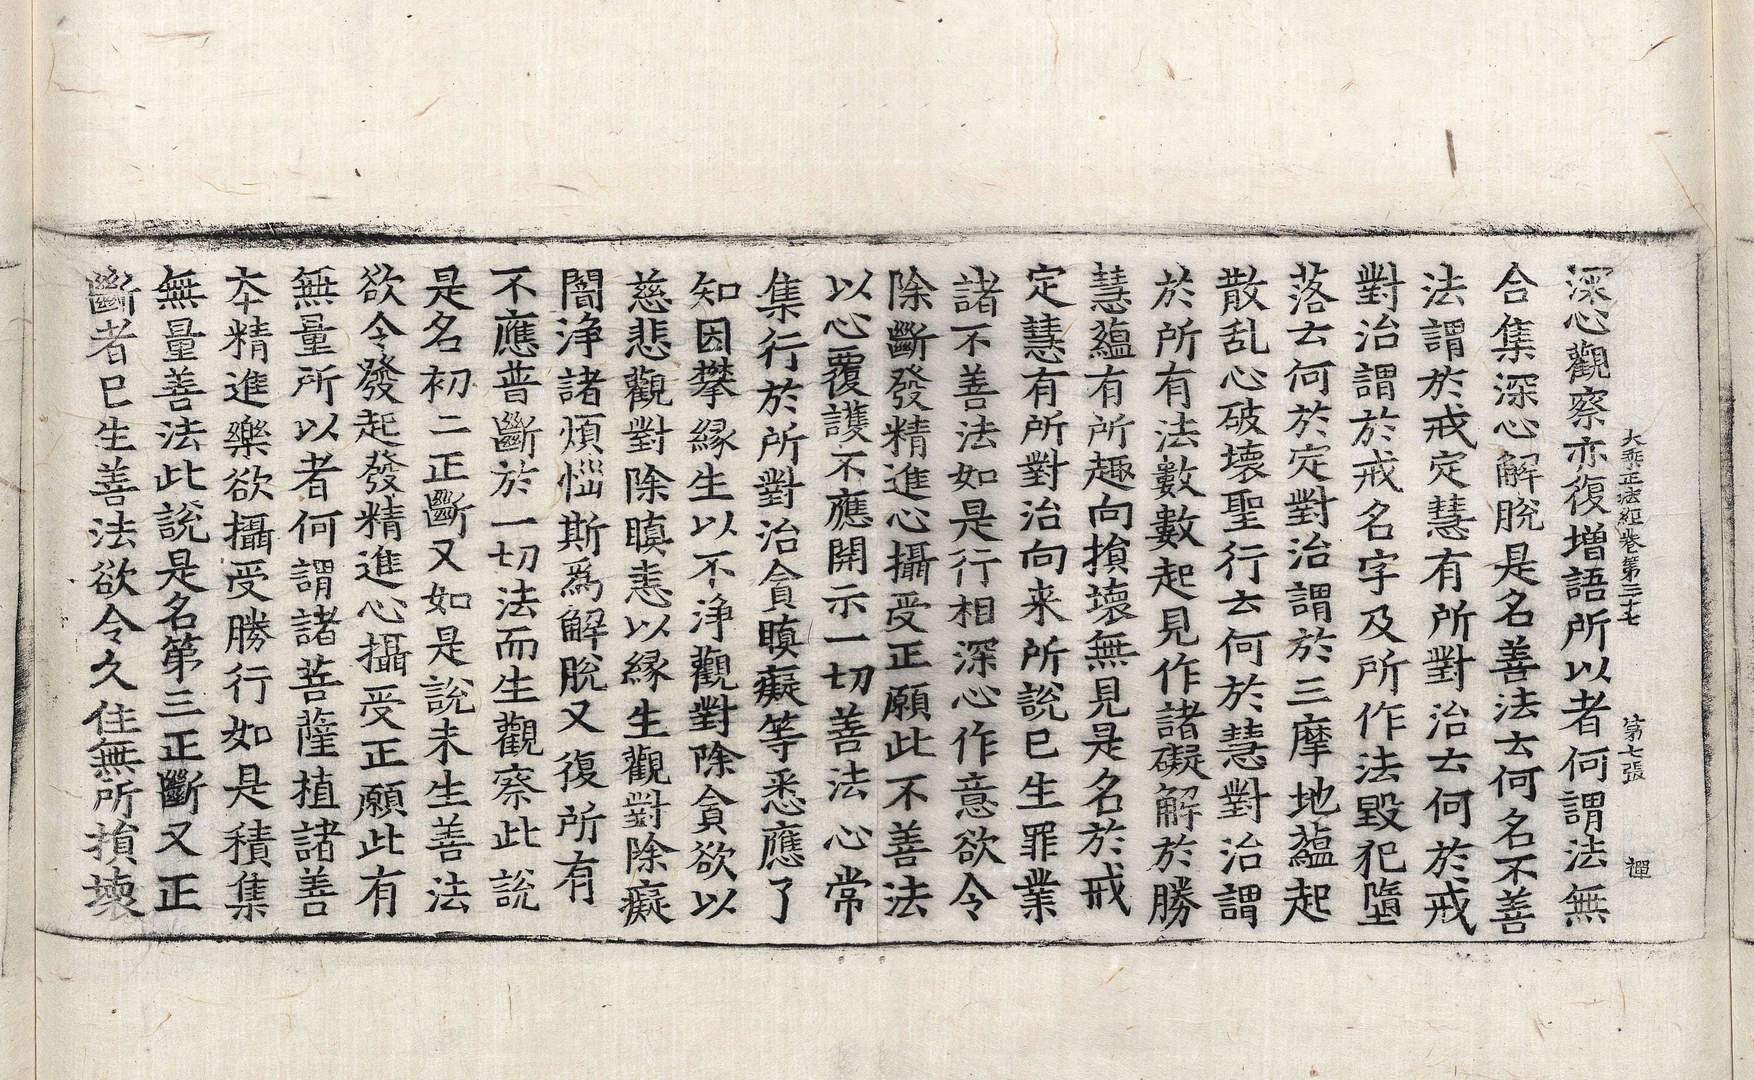 大乘正法經卷第三十七　第七張　禪
深心觀察亦復增語所以者何謂法無
合集深心解脫是名善法云何名不善
法謂於戒定慧有所對治云何於戒
對治謂於戒名字及所作法毀犯墮
落云何於定對治謂於三摩地蘊起
散乱心破壞聖行云何於慧對治謂
於所有法數數起見作諸礙解於勝
慧蘊有所趣向損壞無見是名於戒
定慧有所對治向来所說已生罪業
諸不善法如是行相深心作意欲令
除斷發精進心攝受正願此不善法
以心覆護不應開示一切善法心常
集行於所對治貪瞋癡等悉應了
知因攀緣生以不淨觀對除貪欲以
慈悲觀對除瞋恚以緣生觀對除癡
闇淨諸煩惱斯為解脫又復所有
不應普斷於一切法而生觀察此說
是名初二正斷又如是說未生善法
欲令發起發精進心攝受正願此有
無量所以者何謂諸菩薩植諸善
夲精進樂欲攝受勝行如是積集
無量善法此說是名第三正斷又正
斷者已生善法欲令久住無所損壞